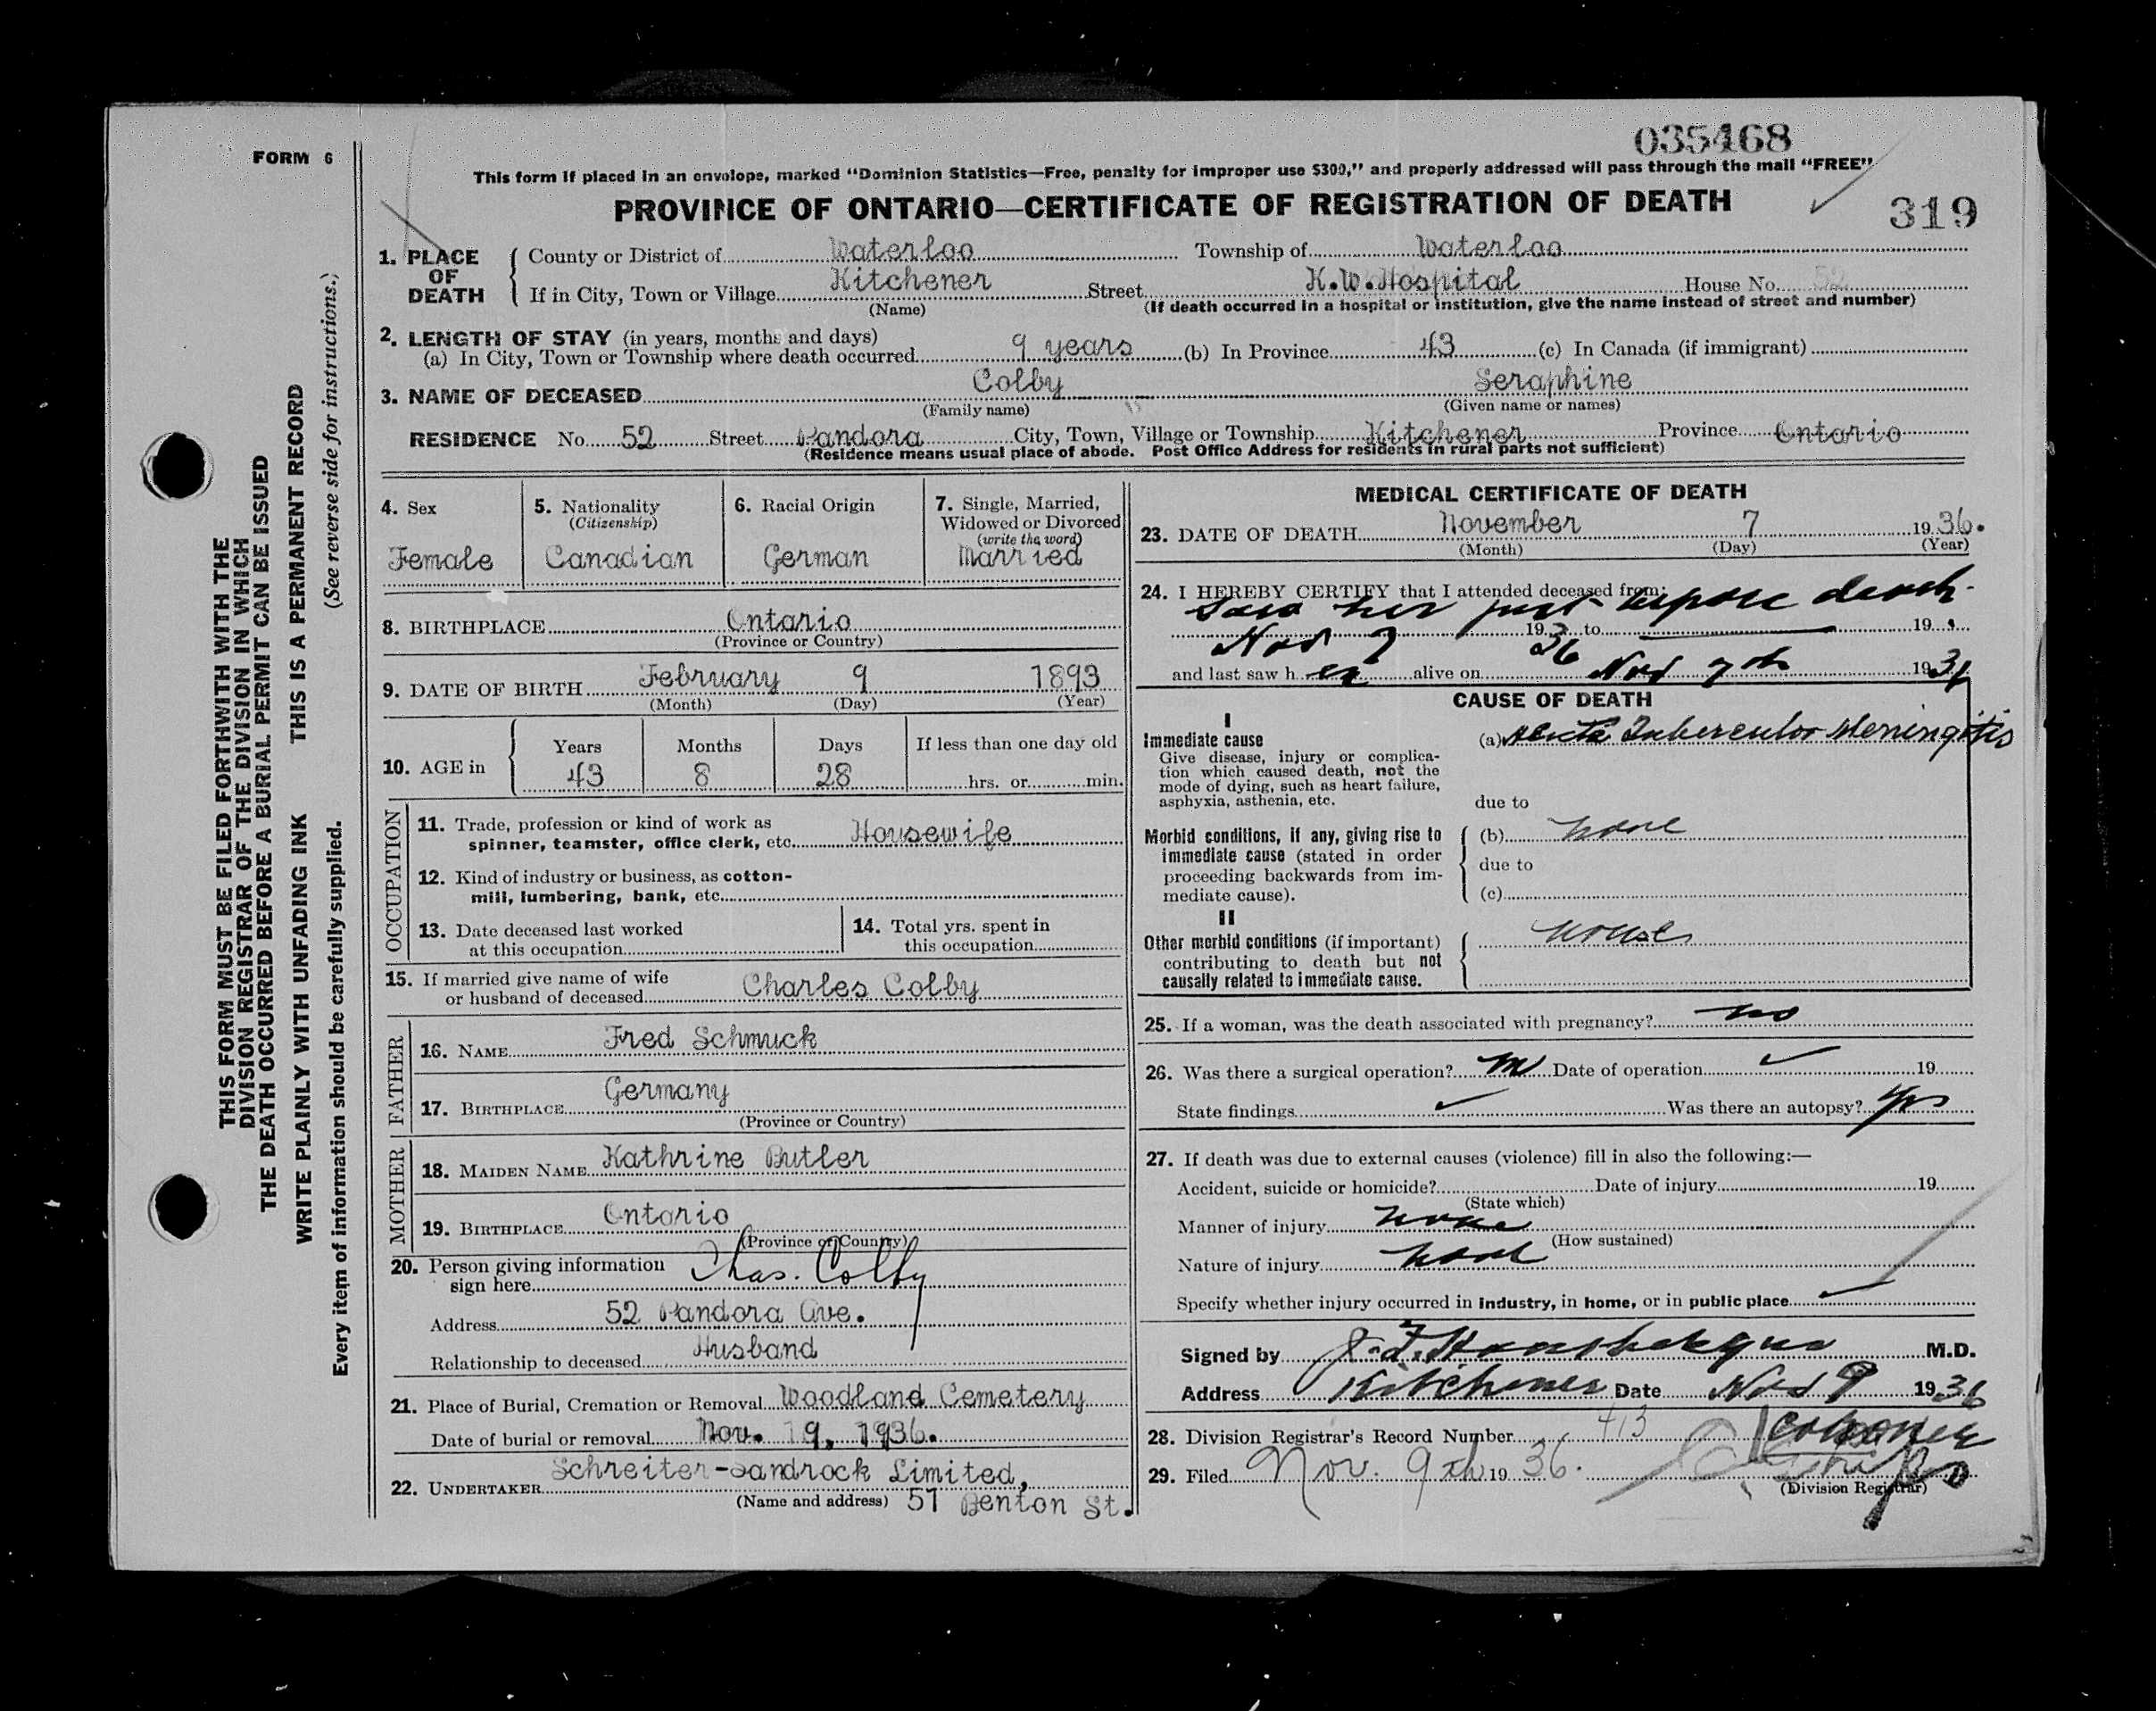 035468
FORM 6
This form if placed in an envelope, marked "Dominion Statistics—Free, penalty for improper use $300," and properly addressed will pass through the mail "FREE"
PROVINCE OF ONTARIO—CERTIFICATE OF REGISTRATION OF DEATH
319
THIS FORM MUST BE FILED FORTHWITH WITH THE
DIVISION REGISTRAR OF THE DIVISION IN WHICH
THE DEATH OCCURRED BEFORE A BURIAL PERMIT CAN BE ISSUED
WRITE PLAINLY WITH UNFADING INK THIS IS A PERMANENT RECORD
Every item of information should be carefully supplied. (See reverse side for instructions.)
1. PLACE OF DEATH
County or District of Waterloo Township of Waterloo
If in City, Town or Village Kitchener Street K.W. Hospital House No. 52
(Name) (If death occurred in a hospital or institution, give the name instead of street and number)
2. LENGTH OF STAY (in years, months and days)
(a) In City, Town or Township where death occurred 9 years (b) In Province 43 (c) In Canada (if immigrant)
3. NAME OF DECEASED Colby Seraphine
(Family name) (Given name or names)
RESIDENCE No. 52 Street Pandora City, Town, Village or Township Kitchener Province Ontario
(Residence means usual place of abode. Post Office Address for residents in rural parts not sufficient)
4. Sex
Female
5. Nationality
(Citizenship)
Canadian
6. Racial Origin
German
7. Single, Married,
Widowed or Divorced
(write the word)
Married
8. BIRTHPLACE Ontario
(Province or Country)
9. DATE OF BIRTH February 9 1893
(Month) (Day) (Year)
10. AGE in
Years Months Days If less than one day old
43 8 28 hrs. or min.
OCCUPATION
11. Trade, profession or kind of work as
spinner, teamster, office clerk, etc. Housewife
12. Kind of industry or business, as cotton-
mill, lumbering, bank, etc.
13. Date deceased last worked
at this occupation
14. Total yrs. spent in
this occupation
15. If married give name of wife
or husband of deceased Charles Colby
FATHER
16. NAME Fred Schmuck
17. BIRTHPLACE Germany
(Province or Country)
MOTHER
18. MAIDEN NAME Kathrine Butler
19. BIRTHPLACE Ontario
(Province or Country)
20. Person giving information
sign here Chas. Colby
Address 52 Pandora Ave.
Relationship to deceased Husband
21. Place of Burial, Cremation or Removal Woodland Cemetery
Date of burial or removal Nov. 9, 1936.
22. UNDERTAKER Schreiter-Sandrock Limited,
(Name and address) 51 Benton St.
MEDICAL CERTIFICATE OF DEATH
23. DATE OF DEATH November 7 1936.
(Month) (Day) (Year)
24. I HEREBY CERTIFY that I attended deceased from:
Saw her just before death.
Nov 7 1936 to 19
and last saw her alive on Nov 7th 1936
CAUSE OF DEATH
I
Immediate cause
Give disease, injury or complica-
tion which caused death, not the
mode of dying, such as heart failure,
asphyxia, asthenia, etc.
(a) Acute Tubercular Meningitis
due to
Morbid conditions, if any, giving rise to
immediate cause (stated in order
proceeding backwards from im-
mediate cause).
(b) none
due to
(c)
II
Other morbid conditions (if important)
contributing to death but not
causally related to immediate cause.
none
25. If a woman, was the death associated with pregnancy? no
26. Was there a surgical operation? no Date of operation 19
State findings Was there an autopsy? yes
27. If death was due to external causes (violence) fill in also the following:—
Accident, suicide or homicide? Date of injury 19
(State which)
Manner of injury none
(How sustained)
Nature of injury none
Specify whether injury occurred in industry, in home, or in public place
Signed by M.D.
Address Kitchener Date Nov 9 1936
Coroner
28. Division Registrar's Record Number 413
29. Filed Nov. 9th 1936.
(Division Registrar)